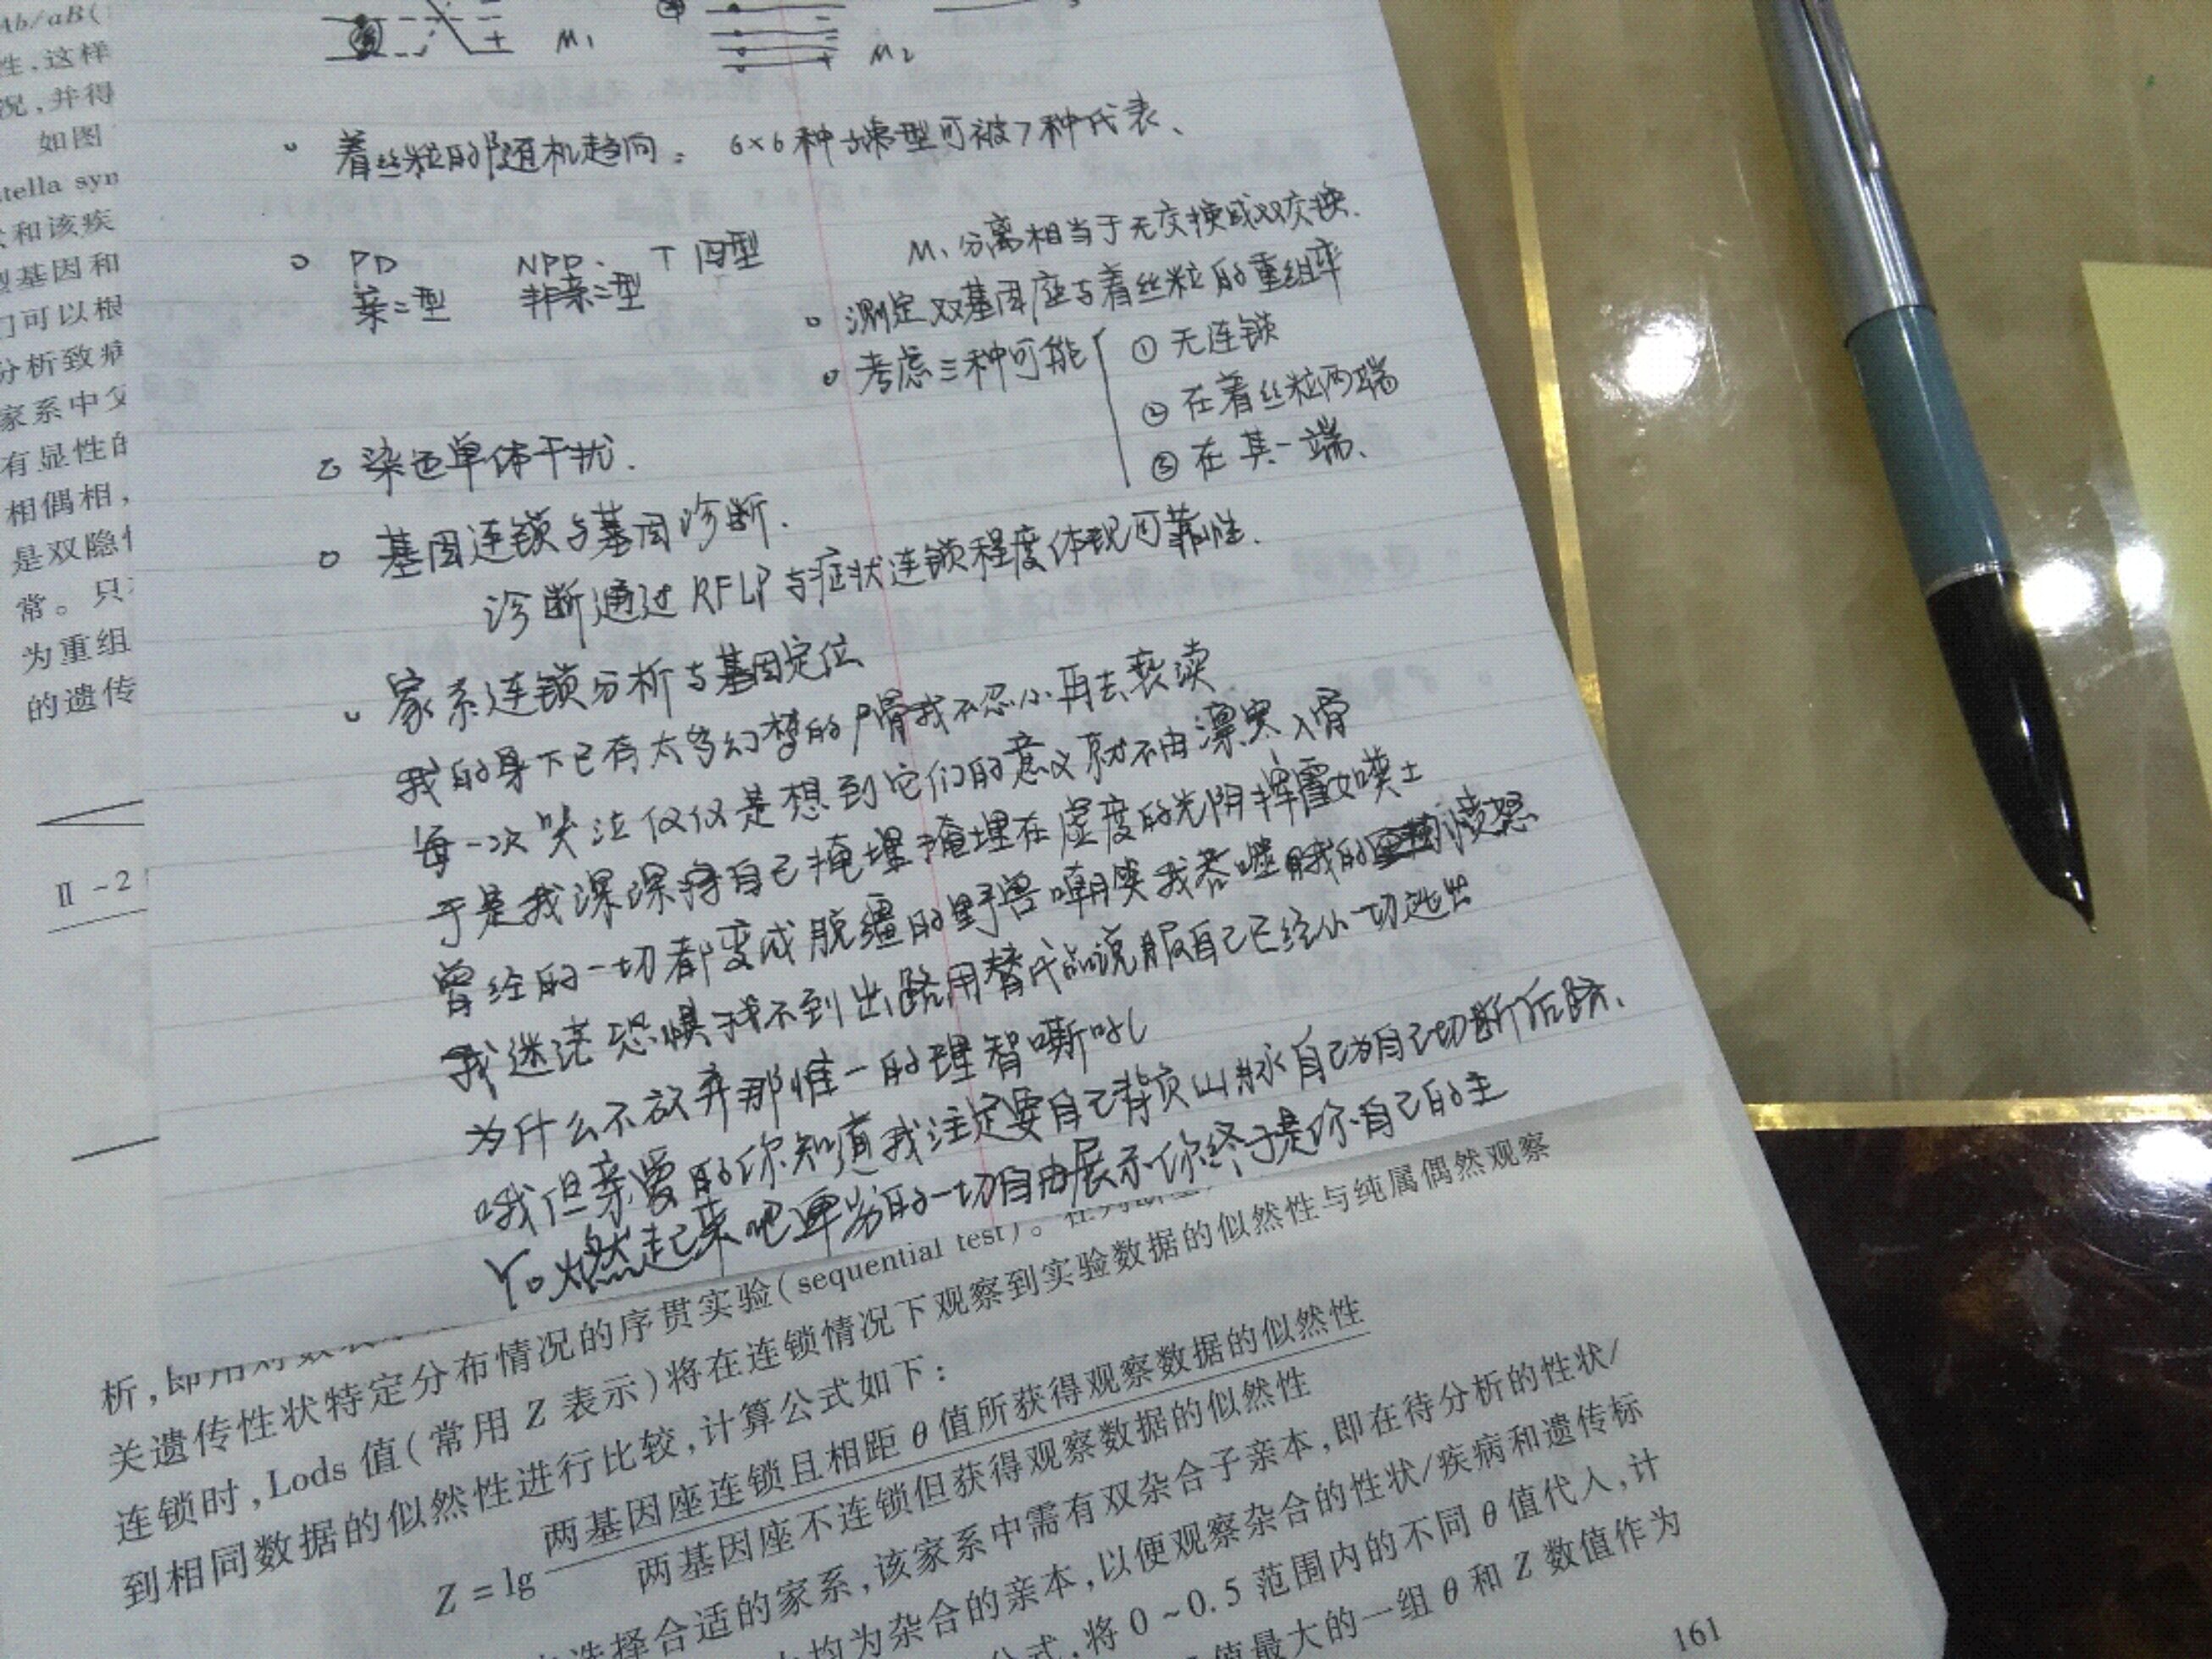 Ab/aB(
性,这样
况,并得
如图
tella syn
和该疾
型基因和
门可以根
分析致病
家系中父
有显性的
相偶相,
是双隐性
常。只
为重组
的遗传
Ⅱ-2
+ M1
+ M2
着丝粒的随机趋向: 6×6种子囊型可被7种代表、
PD NPD. T 四型
亲二型 非亲二型
M1分离相当于无交换或双交换.
测定双基因座与着丝粒的重组率
考虑三种可能 ① 无连锁
② 在着丝粒两端
③ 在其一端、
染色单体干扰.
基因连锁与基因诊断.
诊断通过RFLP与症状连锁程度体现可靠性.
家系连锁分析与基因定位
我的身下已有太多幻梦的尸骨我不忍心再去亵渎
每一次哭泣仅仅是想到它们的意义就不由凛寒入骨
于是我深深将自己掩埋掩埋在虚度的光阴挥霍如粪土
曾经的一切都变成脱缰的野兽嘲笑我吞噬我的愤怒
我迷茫恐惧找不到出路用替代品说服自己已经从一切逃出
为什么不放弃那惟一的理智嘶吼
哦但亲爱的你知道我注定要自己背负山脉自己为自己切断后路、
Yo燃起来吧卑劣的一切自由展示你终于是你自己的主
析,即用对数
关遗传性状特定分布情况的序贯实验(sequential test)。
连锁时,Lods 值(常用 Z 表示)将在连锁情况下观察到实验数据的似然性与纯属偶然观察
到相同数据的似然性进行比较,计算公式如下:
Z = lg 两基因座连锁且相距 θ 值所获得观察数据的似然性
两基因座不连锁但获得观察数据的似然性
选择合适的家系,该家系中需有双杂合子亲本,即在待分析的性状/
均为杂合的亲本,以便观察杂合的性状/疾病和遗传标
公式,将 0~0.5 范围内的不同 θ 值代入,计
值最大的一组 θ 和 Z 数值作为
161